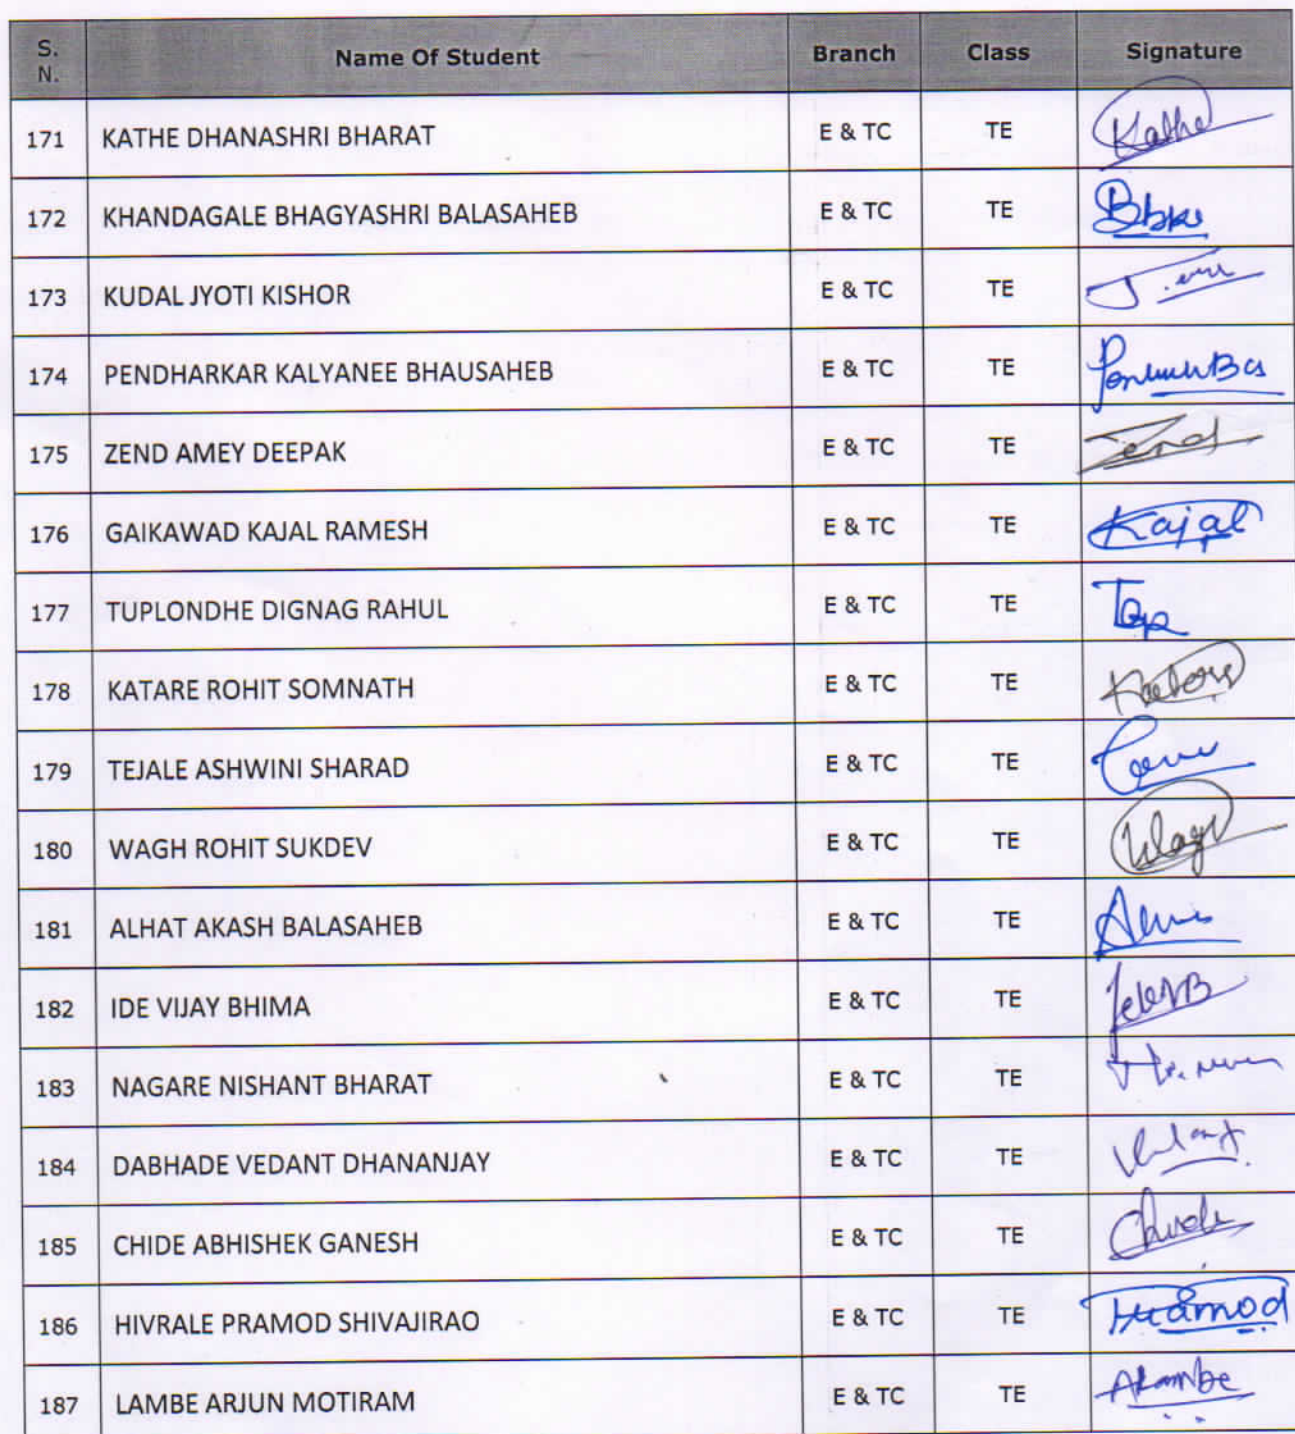 S. N. Name Of Student Branch Class Signature
171 KATHE DHANASHRI BHARAT E & TC TE Kathe
172 KHANDAGALE BHAGYASHRI BALASAHEB E & TC TE
173 KUDAL JYOTI KISHOR E & TC TE
174 PENDHARKAR KALYANEE BHAUSAHEB E & TC TE
175 ZEND AMEY DEEPAK E & TC TE Zend
176 GAIKAWAD KAJAL RAMESH E & TC TE Kajal
177 TUPLONDHE DIGNAG RAHUL E & TC TE
178 KATARE ROHIT SOMNATH E & TC TE
179 TEJALE ASHWINI SHARAD E & TC TE
180 WAGH ROHIT SUKDEV E & TC TE
181 ALHAT AKASH BALASAHEB E & TC TE
182 IDE VIJAY BHIMA E & TC TE
183 NAGARE NISHANT BHARAT E & TC TE
184 DABHADE VEDANT DHANANJAY E & TC TE
185 CHIDE ABHISHEK GANESH E & TC TE
186 HIVRALE PRAMOD SHIVAJIRAO E & TC TE Pramod
187 LAMBE ARJUN MOTIRAM E & TC TE ALambe